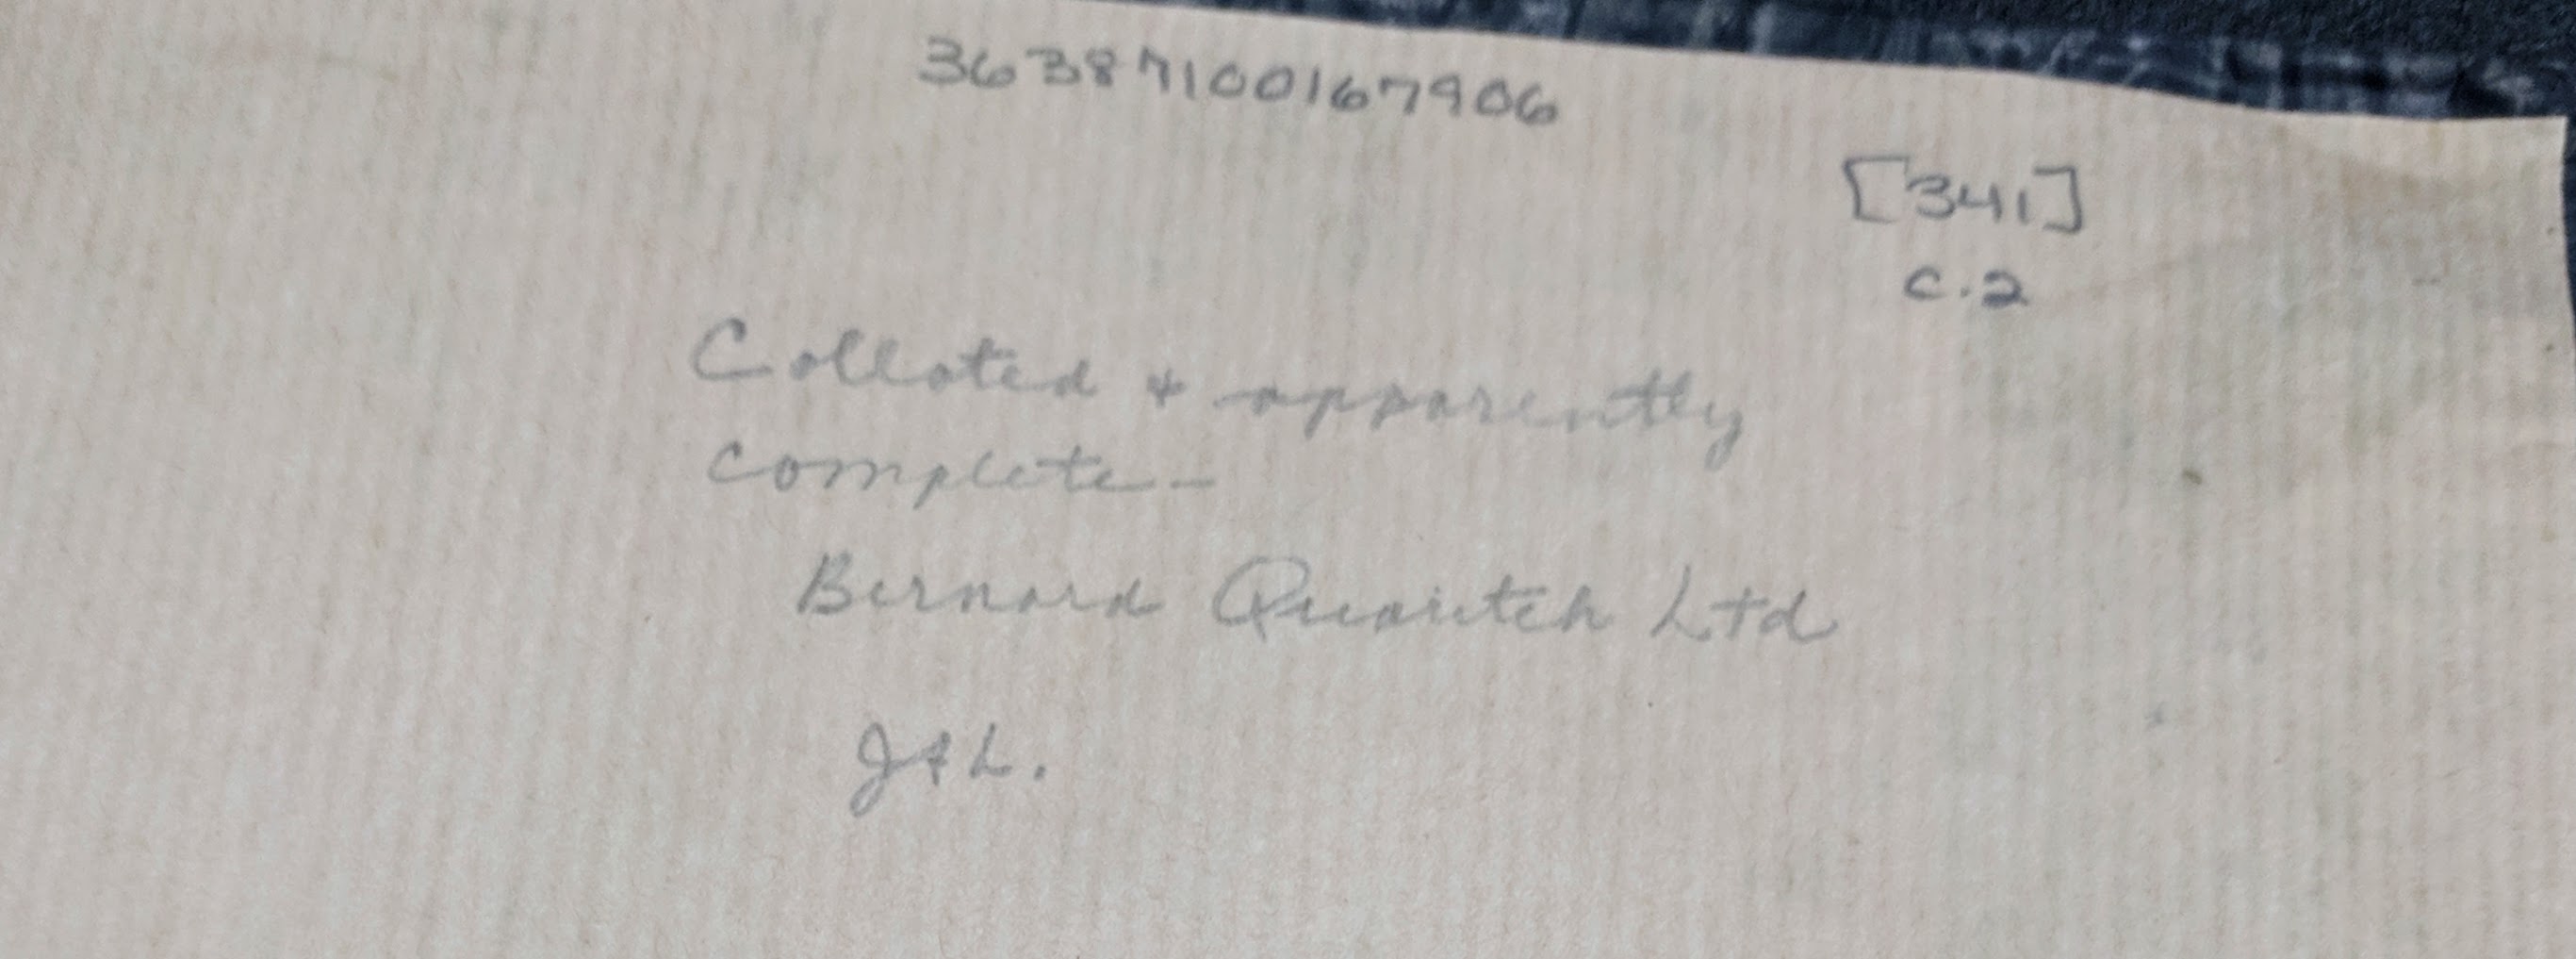 36387100167906
[341]
c.2
Collated & apparently
complete-
Bernard Quaritch Ltd
J&L.